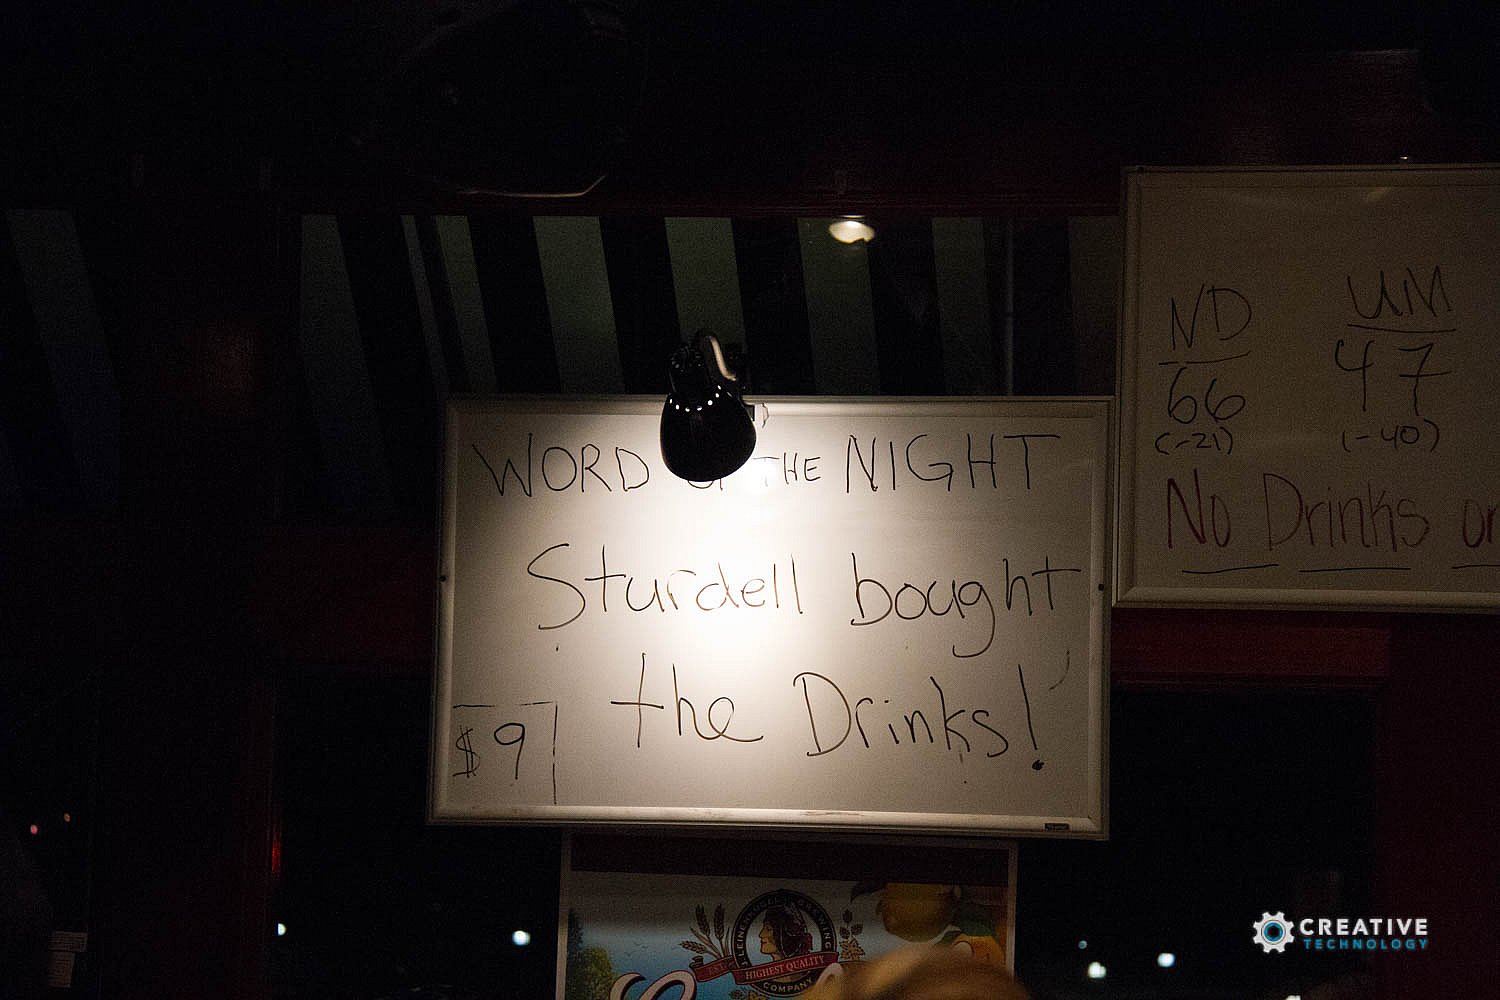 WORD OF THE NIGHT
Sturdell bought
the Drinks!
$9
ND UM
66 47
(-21) (-40)
No Drinks or
J. LEINENKUGEL'S BREWING
EST.
HIGHEST QUALITY
COMPANY
CREATIVE
TECHNOLOGY